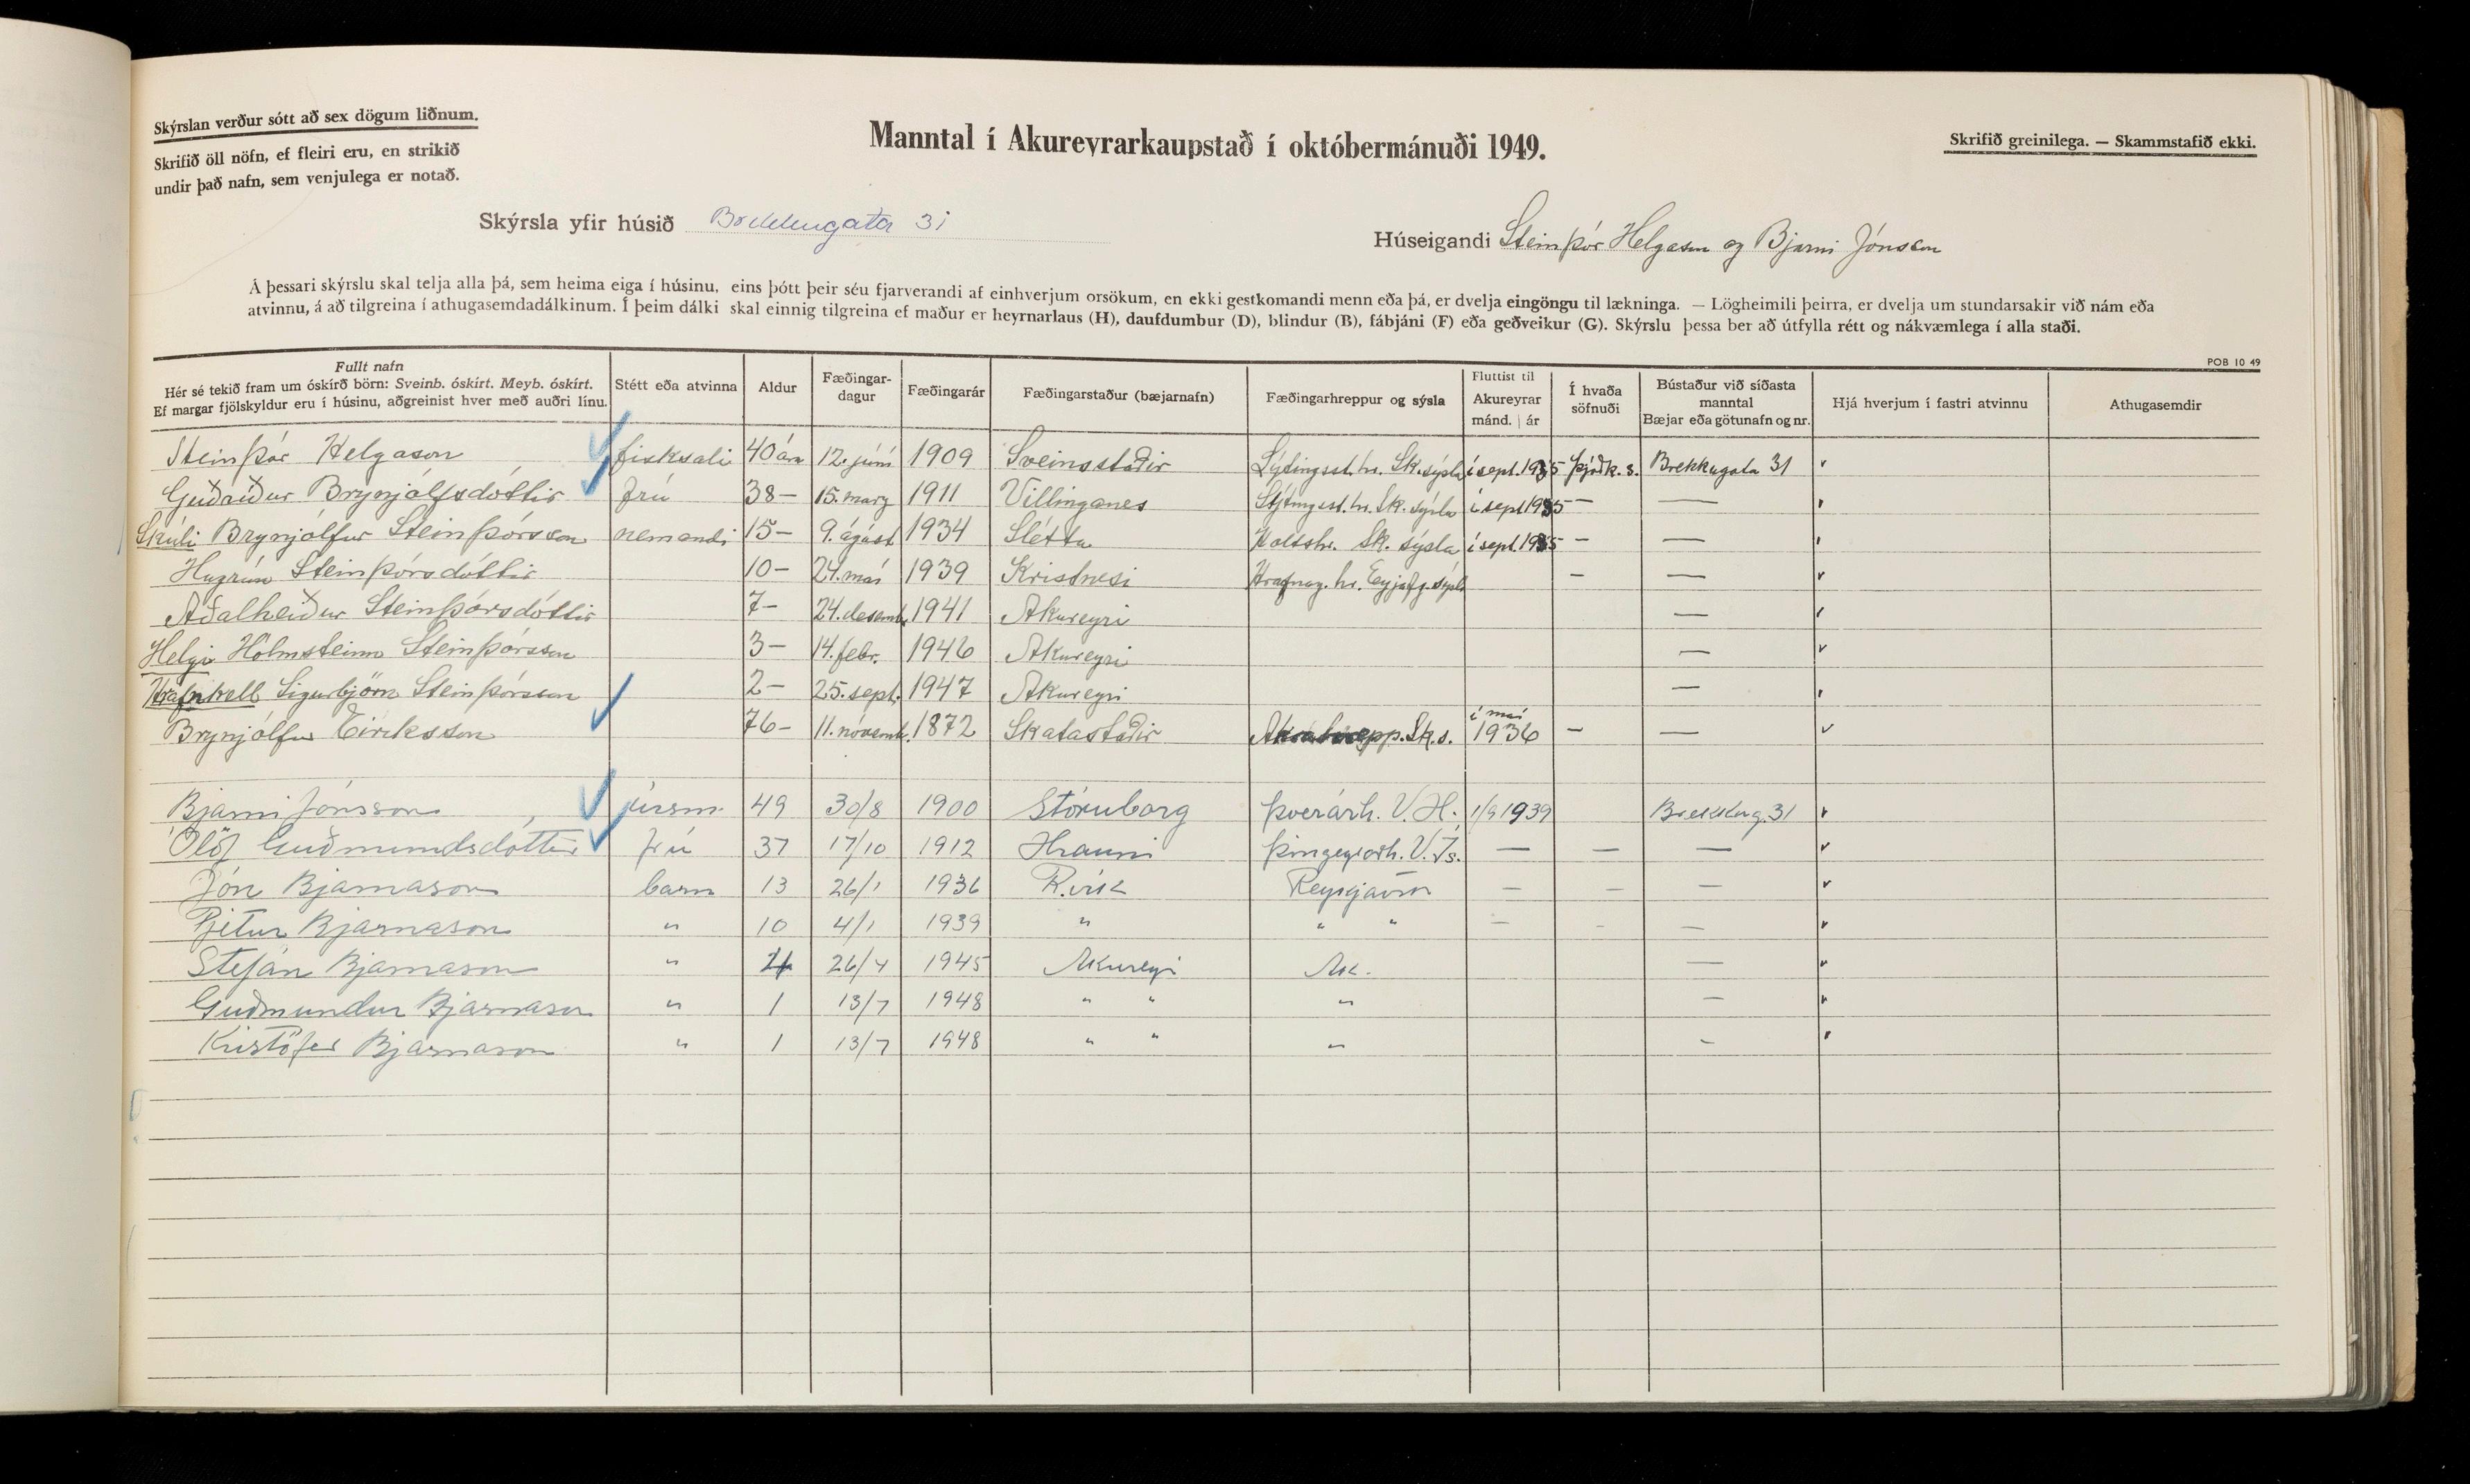 Skýrslan verður sótt að sex dögum liðnum.
Skrifið öll nöfn, ef fleiri eru, en strikið
undir það nafn, sem venjulega er notað.
Manntal í Akureyrarkaupstað í októbermánuði 1949.
Skrifið greinilega. — Skammstafið ekki.
Skýrsla yfir húsið Brekkugata 31
Húseigandi Steinþór Helgason og Bjarni Jónsson
Á þessari skýrslu skal telja alla þá, sem heima eiga í húsinu, eins þótt þeir séu fjarverandi af einhverjum orsökum, en ekki gestkomandi menn eða þá, er dvelja eingöngu til lækninga. — Lögheimili þeirra, er dvelja um stundarsakir við nám eða
atvinnu, á að tilgreina í athugasemdadálkinum. Í þeim dálki skal einnig tilgreina ef maður er heyrnarlaus (H), daufdumbur (D), blindur (B), fábjáni (F) eða geðveikur (G). Skýrslu þessa ber að útfylla rétt og nákvæmlega í alla staði.
POB 10 49
Fullt nafn
Hér sé tekið fram um óskírð börn: Sveinb. óskírt. Meyb. óskírt.
Ef margar fjölskyldur eru í húsinu, aðgreinist hver með auðri línu.
Stétt eða atvinna
Aldur
Fæðingar-
dagur
Fæðingarár
Fæðingarstaður (bæjarnafn)
Fæðingarhreppur og sýsla
Fluttist til
Akureyrar
mánd. | ár
Í hvaða
söfnuði
Bústaður við síðasta
manntal
Bæjar eða götunafn og nr.
Hjá hverjum í fastri atvinnu
Athugasemdir
Steinþór Helgason fisksali 40 ára 12. júní 1909 Sveinsstaðir Lýtingsst.hr. Sk.sýsla í sept. 1935 Þjóðk. s. Brekkugata 31
Guðríður Brynjólfsdóttir frú 38 — 15. marz 1911 Villinganes Lýtingsst.hr. Sk. sýsla í sept 1935 — —
Skúli Brynjólfur Steinþórsson nemandi 15 — 9. ágúst 1934 Slétta Holtshr. Sk. sýsla í sept. 1935 — —
Hugrún Steinþórsdóttir 10 — 24. maí 1939 Kristnesi Hrafnag. hr. Eyjafj.sýsla — —
Aðalheiður Steinþórsdóttir 7 — 24. desemb. 1941 Akureyri —
Helgi Hólmsteinn Steinþórsson 3 — 14. febr. 1946 Akureyri —
Hrafnkell Sigurbjörn Steinþórsson 2 — 25. sept. 1947 Akureyri —
Brynjólfur Eiríksson 76 — 11. nóvemb. 1872 Skatastaðir Akrahrepp. Sk.s. í maí 1936 — —
Bjarni Jónsson úrsm. 49 30/8 1900 Stóruborg Þverárh. V. H. 1/9 1939 Brekkug. 31
Ólöf Guðmundsdóttir frú 37 17/10 1912 Hrauni Þingeyrarh. V. Ís. — — —
Jón Bjarnason barn 13 26/1 1936 R.vík Reykjavík — — —
Pjetur Bjarnason " 10 4/1 1939 " " " — — —
Stefán Bjarnason " 4 26/4 1945 Akureyri Ak. —
Guðmundur Bjarnason " 1 13/7 1948 " " " —
Kristófer Bjarnason " 1 13/7 1948 " " " —